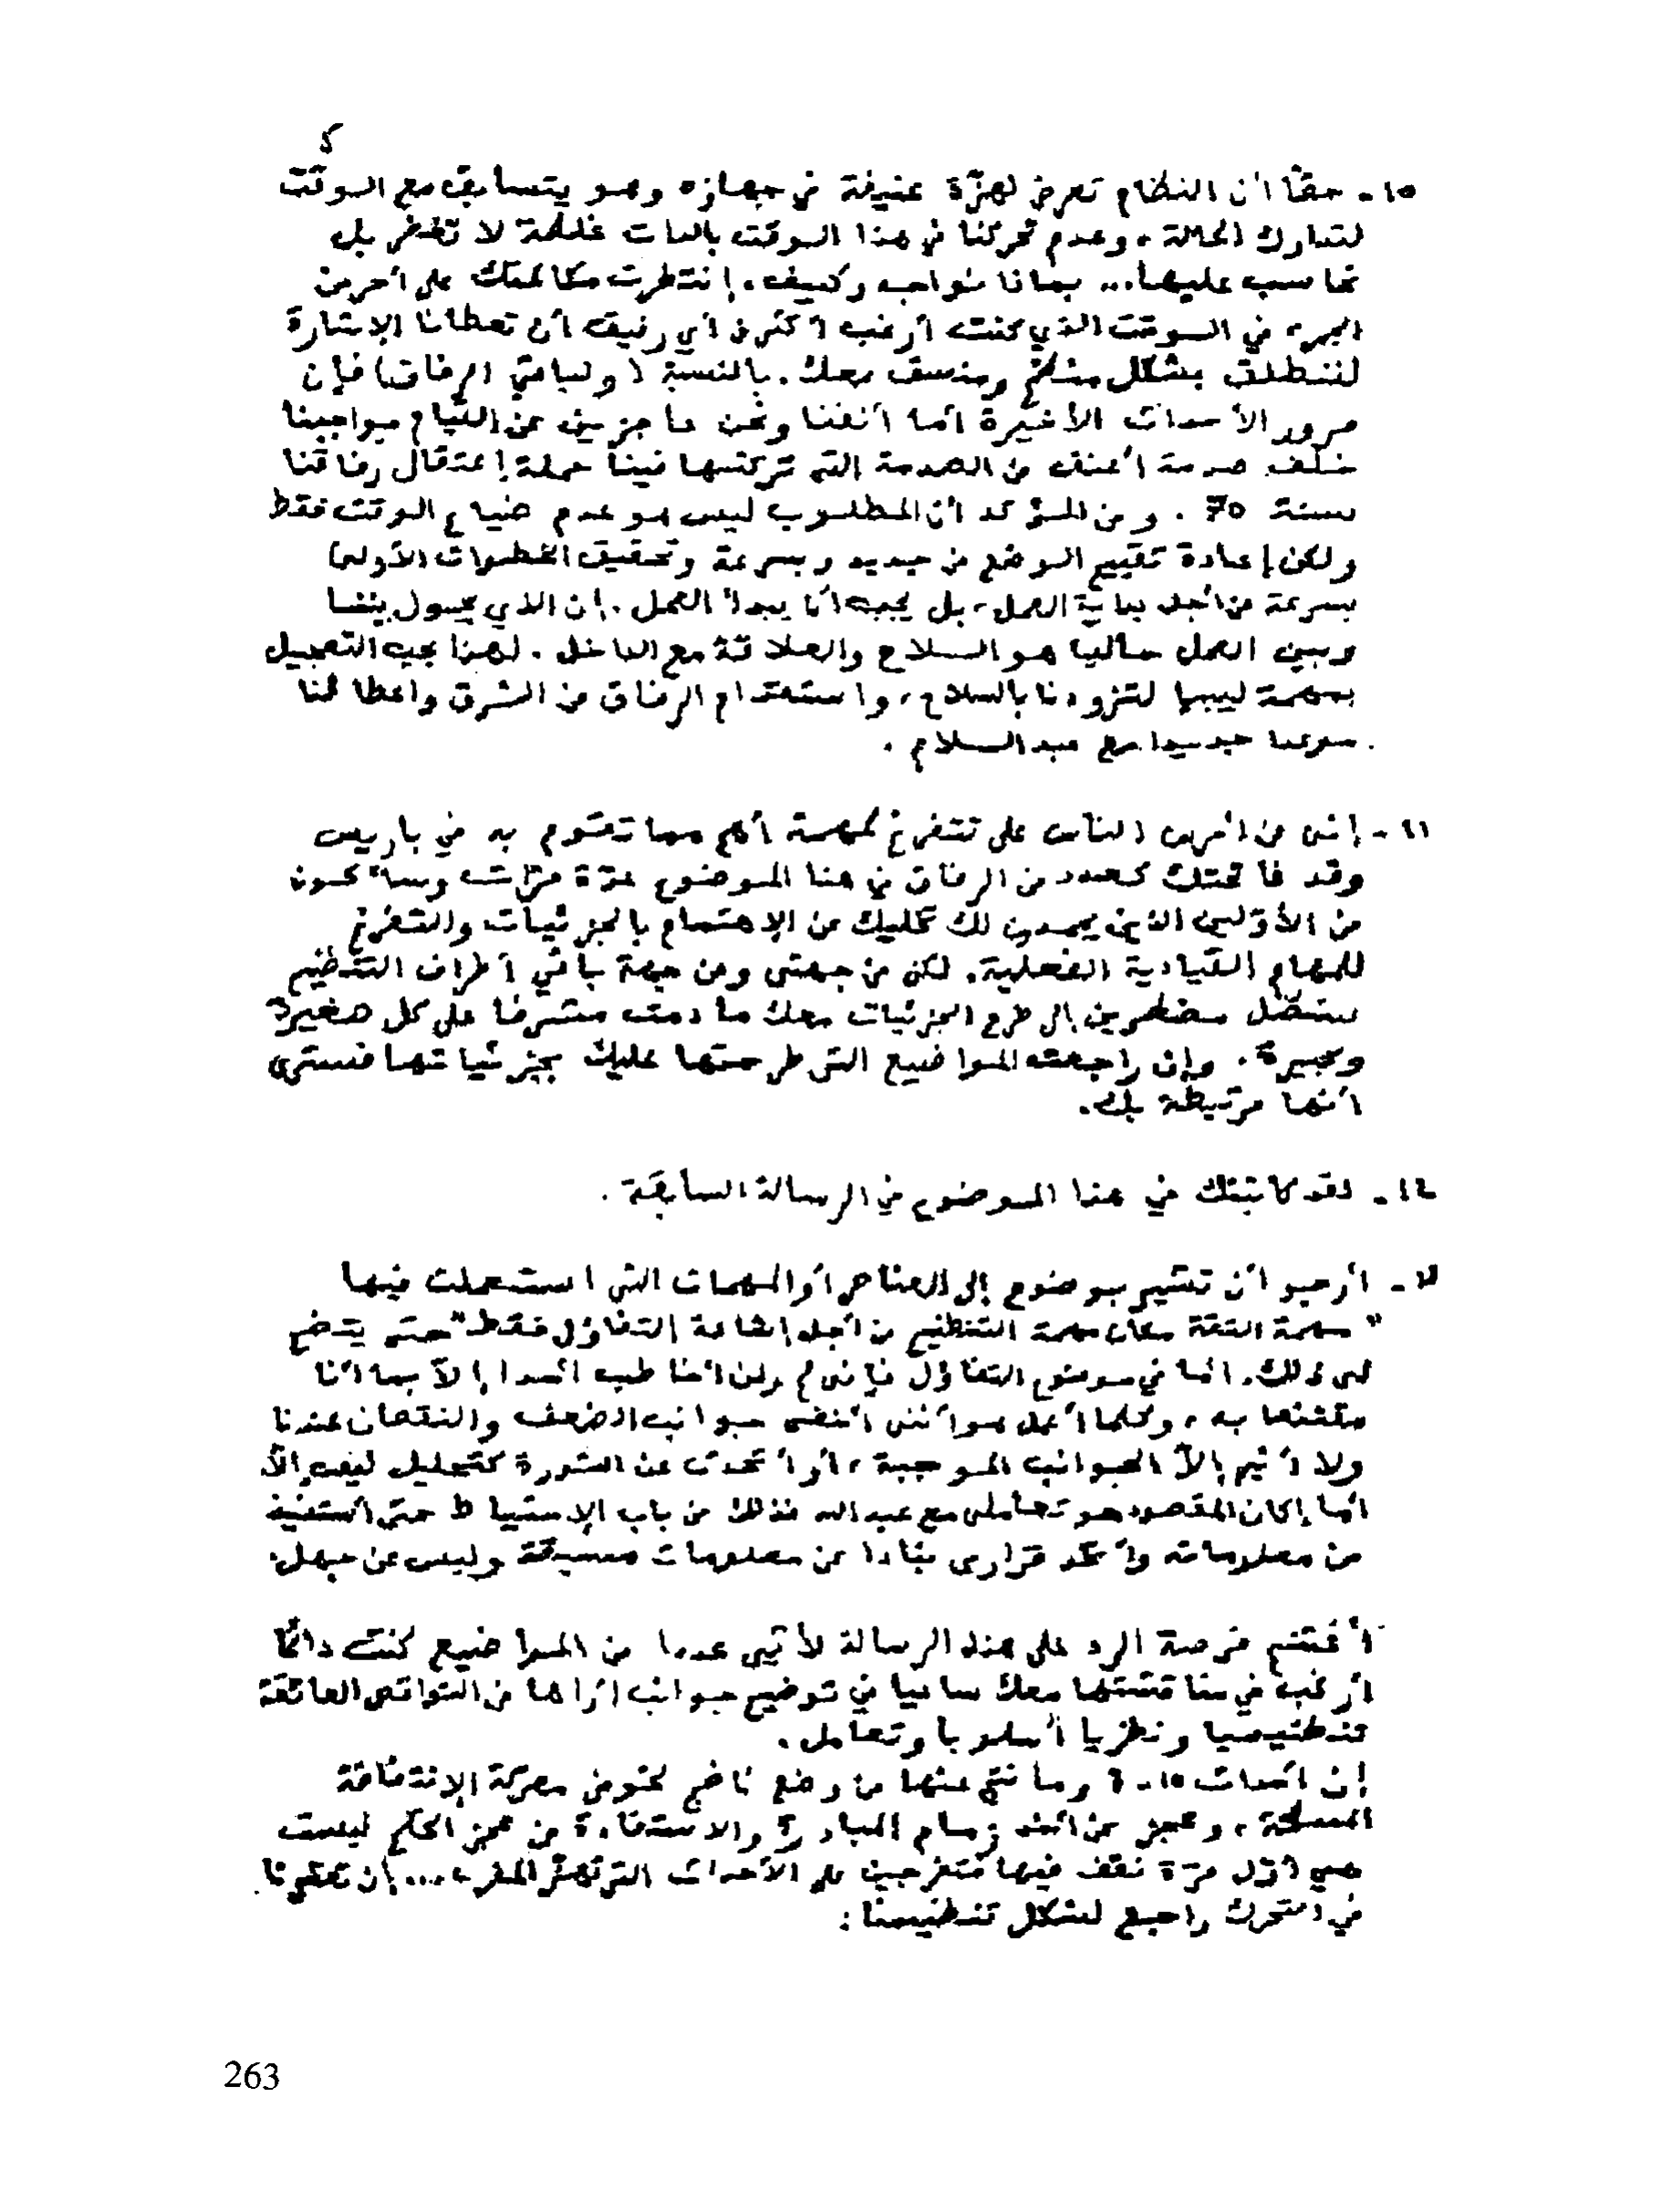 15 - حقّا أن النظام تعرض لهزّة عنيفة في جهازه وهو يتسابق مع الوقت
لتدارك الحالة، وعدم تحركنا في هذا الوقت بالذات غلطة لا تغتفر بل
نحاسب عليها... بماذا نواجه وكيف. إنتظرت مكالمتك على أحر من
الجمر، في الوقت الذي كنت أرغب أكثر من أي رفيق أن تعطانا الإشارة
لننطلق بشكل منظم ومنسق معك. بالنسبة لي ولباقي الرفاق فإن
مرور الأحداث الأخيرة أمام أنفنا ونحن عاجزين عن القيام بواجبنا
خلف صدمة أعنف من الصدمة التي تركتها فينا حملة إعتقال رفاقنا
سنة 70. ومن المؤكد أن المطلوب ليس هو عدم ضياع الوقت فقط
ولكن إعادة تقييم الوضع من جديد وبسرعة وتحقيق الخطوات الأولى
بسرعة من أجل بداية العمل، بل يجب أن يبدأ العمل. إن الذي يحول بيننا
وبين العمل حاليا هو السلاح والعلاقة مع الداخل. لهذا يجب التعجيل
بمهمة ليبيا لتزودنا بالسلاح، واستقدام الرفاق من الشرق واعطائنا
موعدا جديدا مع عبد السلام.
11 - إنني من أحرص الناس على تتفرغ لمهمة أهم مما تقوم به في باريس
وقد فاتحتك كعدد من الرفاق في هذا الموضوع عدّة مرّات وسأكون
من الأوّلين الذين يحمدون لك تخليك عن الإهتمام بالجزئيات والتفرغ
للمهام القيادية الفعلية. لكن من جهتي ومن جهة باقي أطراف التنظيم
سنضل مضطرين إلى طرح الجزئيات معك ما دمت مشرفا على كل صغيرة
وكبيرة. وإن راجعت المواضيع التي طرحتها عليك بجزئياتها فسترى
أنها مرتبطة بك.
12 - لقد كاتبتك في هذا الموضوع في الرسالة السابقة.
13 - أرجو أن تشير بوضوح إلى العناصر أو المهمات التي استعملت فيها
"مهمة الثقة مكان مهمة التنظيم من أجل إشاعة التفاؤل فقط" حتى يتضح
لي ذلك. أما في موضوع التفاؤل فإنني لم ولن أخاطب أحدا إلاّ بما أنا
مقتنعا به، وكلما أعمل هو أنني أخفي جوانب الضعف والنقصان عندنا
ولا أثير إلاّ الجوانب الموجبة، أو أتحدث عن الثورة كتحليل ليس إلاّ
أما إكان المقصود هو تعاملي مع عبد الله فذلك من باب الإحتياط حتى أستفيد
من معلوماته وأتخذ قراري بناءا عن معلومات مسبقة وليس عن جهل.
أغتنم فرصة الرد على هذه الرسالة لأثير عددا من المواضيع كنت دائما
أرغب في مناقشتها معك ساعيا في توضيح جوانب أراها من النواقص العائقة
تنظيميا ونظريا أسلوبا وتعامل.
إن أحداث 10-7 وما نتج عنها من وضع ناضج لخوض معركة الإنتفاضة
المسلحة، وعجز عن أخذ زمام المبادرة والاستفادة من عجز الحكم ليست
هي أوّل مرّة نقف فيها متفرجين على الأحداث التي تهز المغرب... إن تعثرنا
في التحرك راجع لشكل تنظيمنا:
263